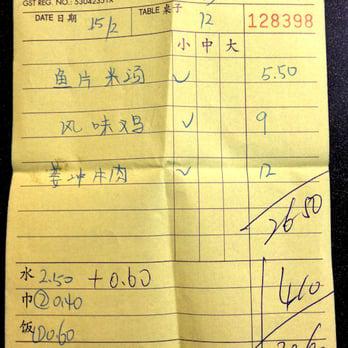 GST REG. NO.: 53042351X
DATE 日期 15/2 TABLE 桌子 12 128398
小 中 大
鱼片米汤 ✓ 5.50
风味鸡 ✓ 9
姜冲牛肉 ✓ 12
26.50
水 2.50 + 0.60
巾 ② 0.40 410
饭 ① 0.60